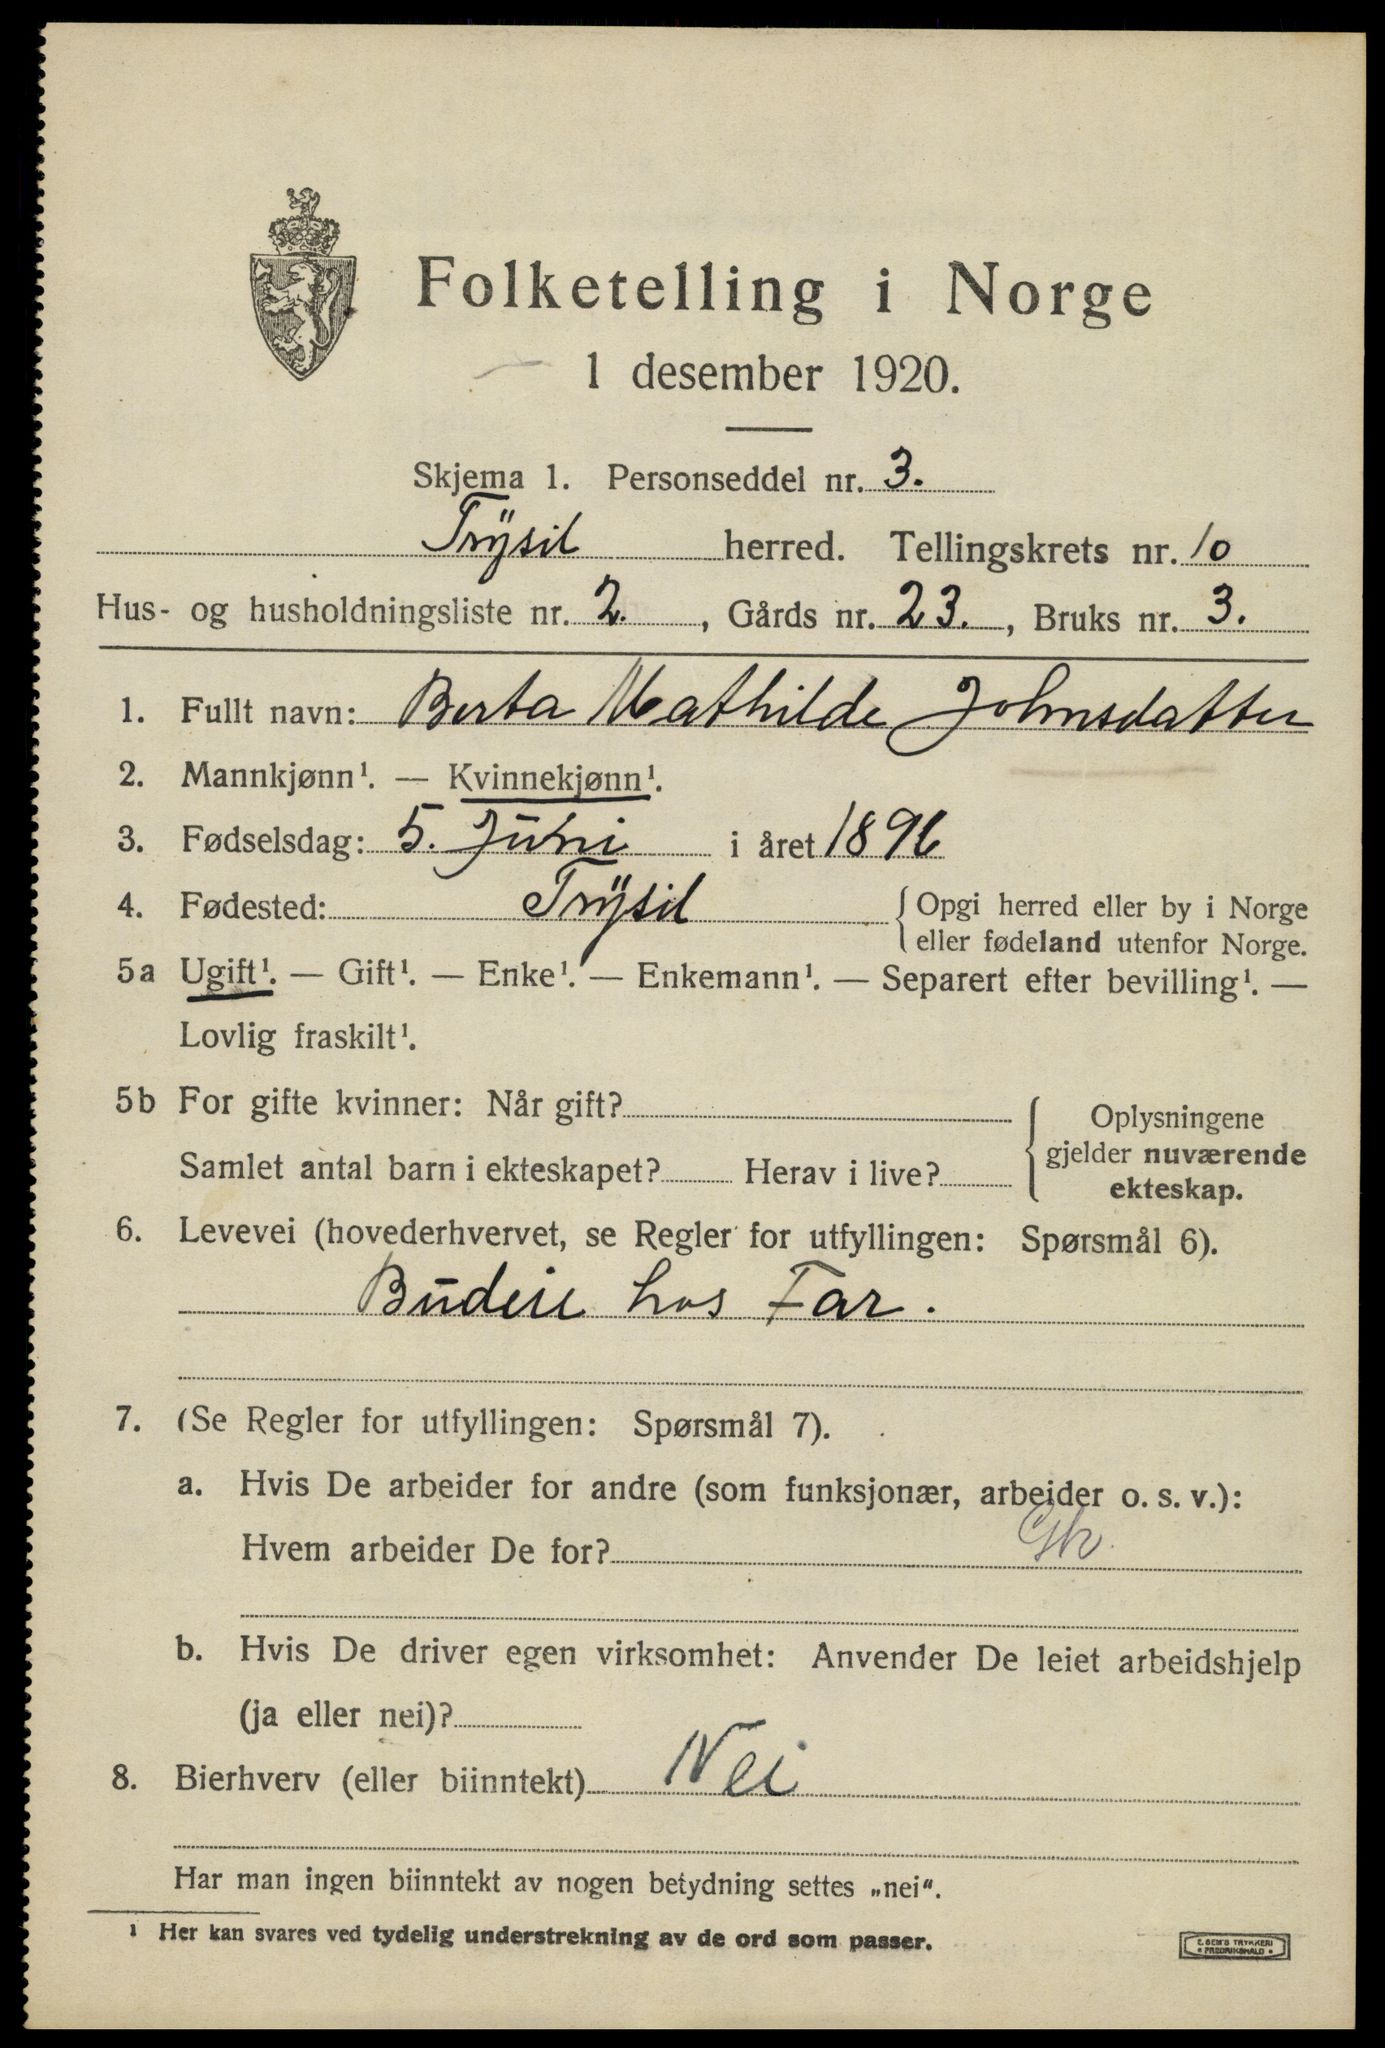 Folketelling i Norge
1 desember 1920.
Skjema 1. Personseddel nr. 3.
Trysil herred. Tellingskrets nr. 10
Hus- og husholdningsliste nr. 2. , Gårds nr. 23. , Bruks nr. 3.
1. Fullt navn: Berta Mathilde Johnsdatter
2. Mannkjønn¹. — Kvinnekjønn¹.
3. Fødselsdag: 5. Juni i året 1896
4. Fødested: Trysil { Opgi herred eller by i Norge
eller fødeland utenfor Norge.
5a Ugift¹. — Gift¹. — Enke¹. — Enkemann¹. — Separert efter bevilling¹. —
Lovlig fraskilt¹.
5b For gifte kvinner: Når gift?
Samlet antal barn i ekteskapet? Herav i live?
{ Oplysningene
gjelder nuværende
ekteskap.
6. Levevei (hovederhvervet, se Regler for utfyllingen: Spørsmål 6).
Budeie hos Far.
7. (Se Regler for utfyllingen: Spørsmål 7).
a. Hvis De arbeider for andre (som funksjonær, arbeider o. s. v.):
Hvem arbeider De for?
b. Hvis De driver egen virksomhet: Anvender De leiet arbeidshjelp
(ja eller nei)?
8. Bierhverv (eller biinntekt) Nei
Har man ingen biinntekt av nogen betydning settes „nei“.
¹ Her kan svares ved tydelig understrekning av de ord som passer.
E. SEM'S TRYKKERI
• FREDRIKSHALD •